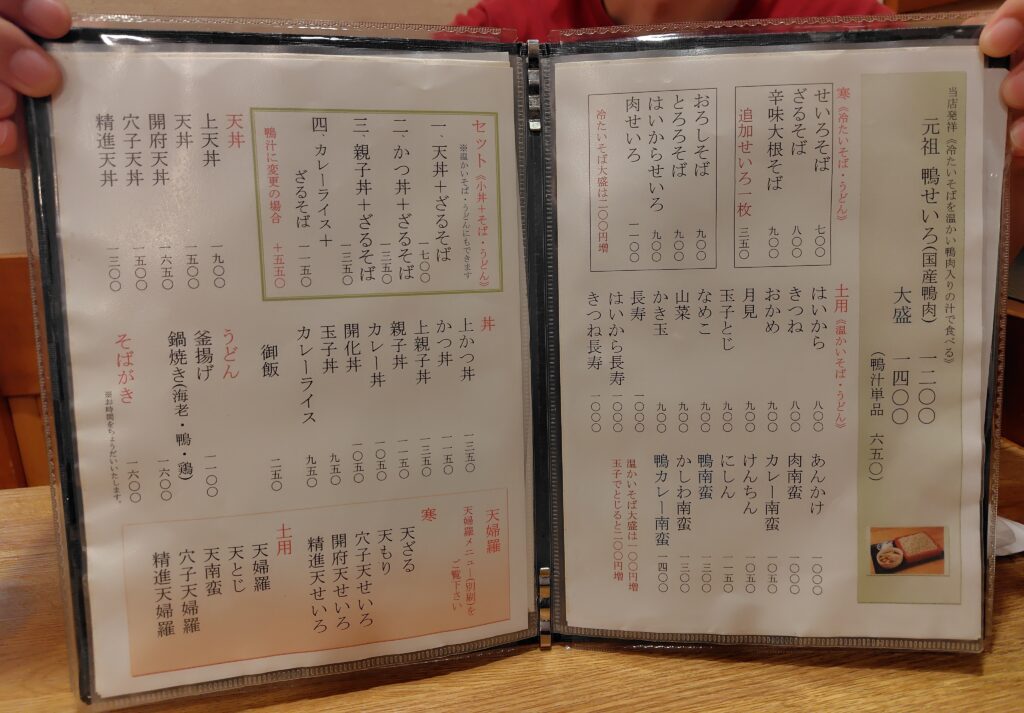 当店発祥《冷たいそばを温かい鴨肉入りの汁で食べる》
元祖 鴨せいろ(国産鴨肉) 一二〇〇
大盛 一四〇〇
(鴨汁単品 六五〇)
寒《冷たいそば・うどん》
せいろそば 七〇〇
ざるそば 八〇〇
辛味大根そば 九〇〇
追加せいろ一枚 三五〇
おろしそば 九〇〇
とろろそば 九〇〇
はいからせいろ 九〇〇
肉せいろ 一一〇〇
冷たいそば大盛は二〇〇円増
土用《温かいそば・うどん》
はいから 八〇〇
きつね 八〇〇
おかめ 九〇〇
月見 九〇〇
玉子とじ 九〇〇
なめこ 九〇〇
山菜 九〇〇
かき玉 九〇〇
長寿 一〇〇〇
はいから長寿 一〇〇〇
きつね長寿 一〇〇〇
あんかけ 一〇〇〇
肉南蛮 一〇〇〇
カレー南蛮 一〇五〇
けんちん 一〇五〇
にしん 一一五〇
鴨南蛮 一三〇〇
かしわ南蛮 一三〇〇
鴨カレー南蛮 一四〇〇
温かいそば大盛は一〇〇円増
玉子でとじると二〇〇円増
セット《小丼+そば・うどん》
※温かいそば・うどんにもできます
一、天丼+ざるそば 一七〇〇
二、かつ丼+ざるそば 一三五〇
三、親子丼+ざるそば 一三五〇
四、カレーライス+
ざるそば 一一五〇
鴨汁に変更の場合 +五五〇
天丼
上天丼 一九〇〇
天丼 一五五〇
開府天丼 一六五〇
穴子天丼 一五〇〇
精進天丼 一三〇〇
丼
上かつ丼 一三五〇
かつ丼 一一五〇
上親子丼 一三五〇
親子丼 一一五〇
カレー丼 一〇五〇
開化丼 一〇五〇
玉子丼 九五〇
カレーライス 九五〇
御飯 二五〇
うどん
釜揚げ 一一〇〇
鍋焼き(海老・鴨・鶏) 一六〇〇
そばがき 一六〇〇
※お時間をちょうだいいたします。
天婦羅
天婦羅メニュー(別刷)を
ご覧下さい
寒
天ざる
天もり
穴子天せいろ
開府天せいろ
精進天せいろ
土用
天婦羅
天とじ
天南蛮
穴子天婦羅
精進天婦羅